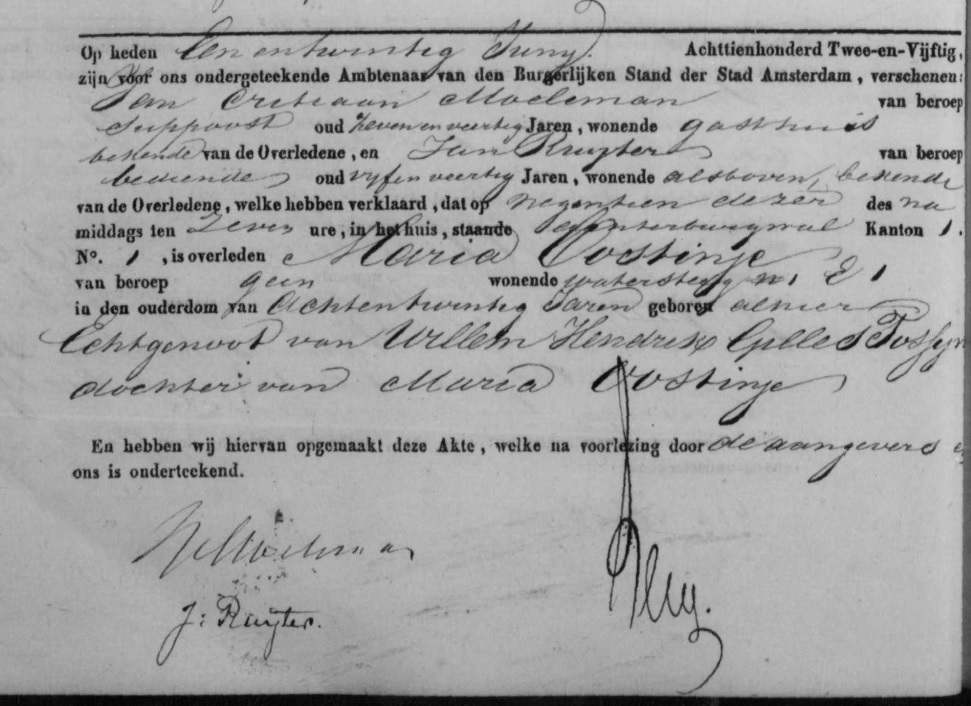 Op heden Een en twintig Juny Achttienhonderd Twee-en-Vijftig,
zijn voor ons ondergeteekende Ambtenaar van den Burgerlijken Stand der Stad Amsterdam, verschenen:
Jan Cristiaan Moeleman van beroep
Suppoost oud Zeven en veertig Jaren, wonende gasthuis
bekende van de Overledene, en Jan Ruyter van beroep
bediende oud vyf en veertig Jaren, wonende alsboven, bekende
van de Overledene, welke hebben verklaard, dat op negentien dezer des na
middags ten Zeven ure, in het huis, staande Kanton 1.
N°. 1, is overleden Maria Oostinje
van beroep geen wonende watersteeg n: E 1
in den ouderdom van Achtentwintig Jaren geboren alhier
Echtgenoot van Willem Hendrik Gilles
dochter van Maria Oostinje
En hebben wij hiervan opgemaakt deze Akte, welke na voorlezing door de aangevers
ons is onderteekend.
J: Ruyter.